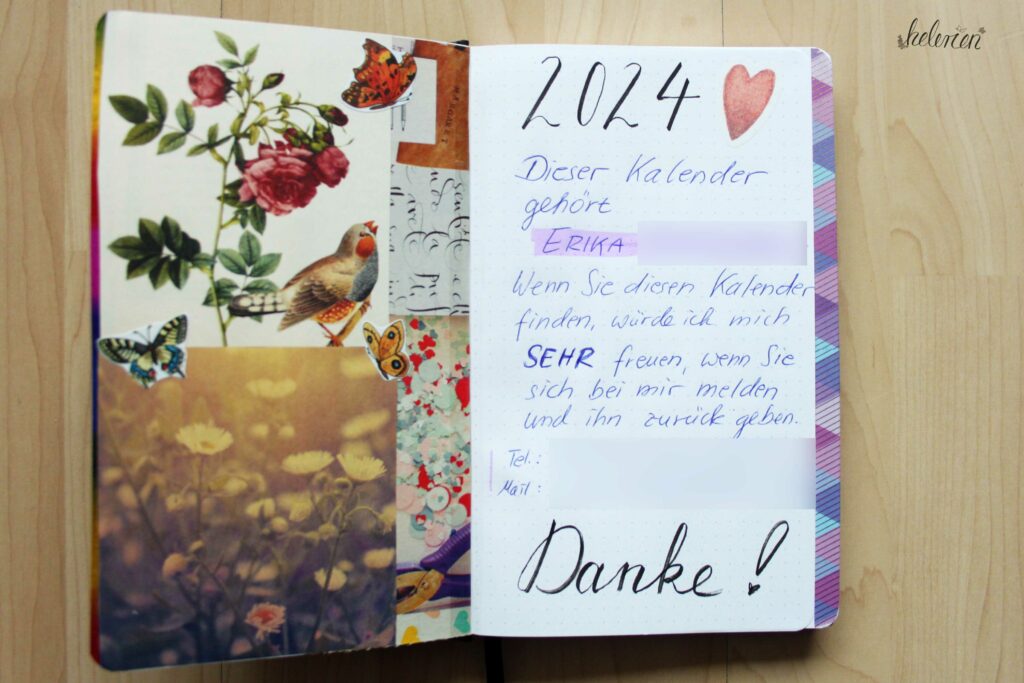 helenen
2024
Dieser Kalender
gehört
ERIKA
Wenn Sie diesen Kalender
finden, würde ich mich
SEHR freuen, wenn Sie
sich bei mir melden
und ihn zurück geben.
Tel.:
Mail:
Danke!